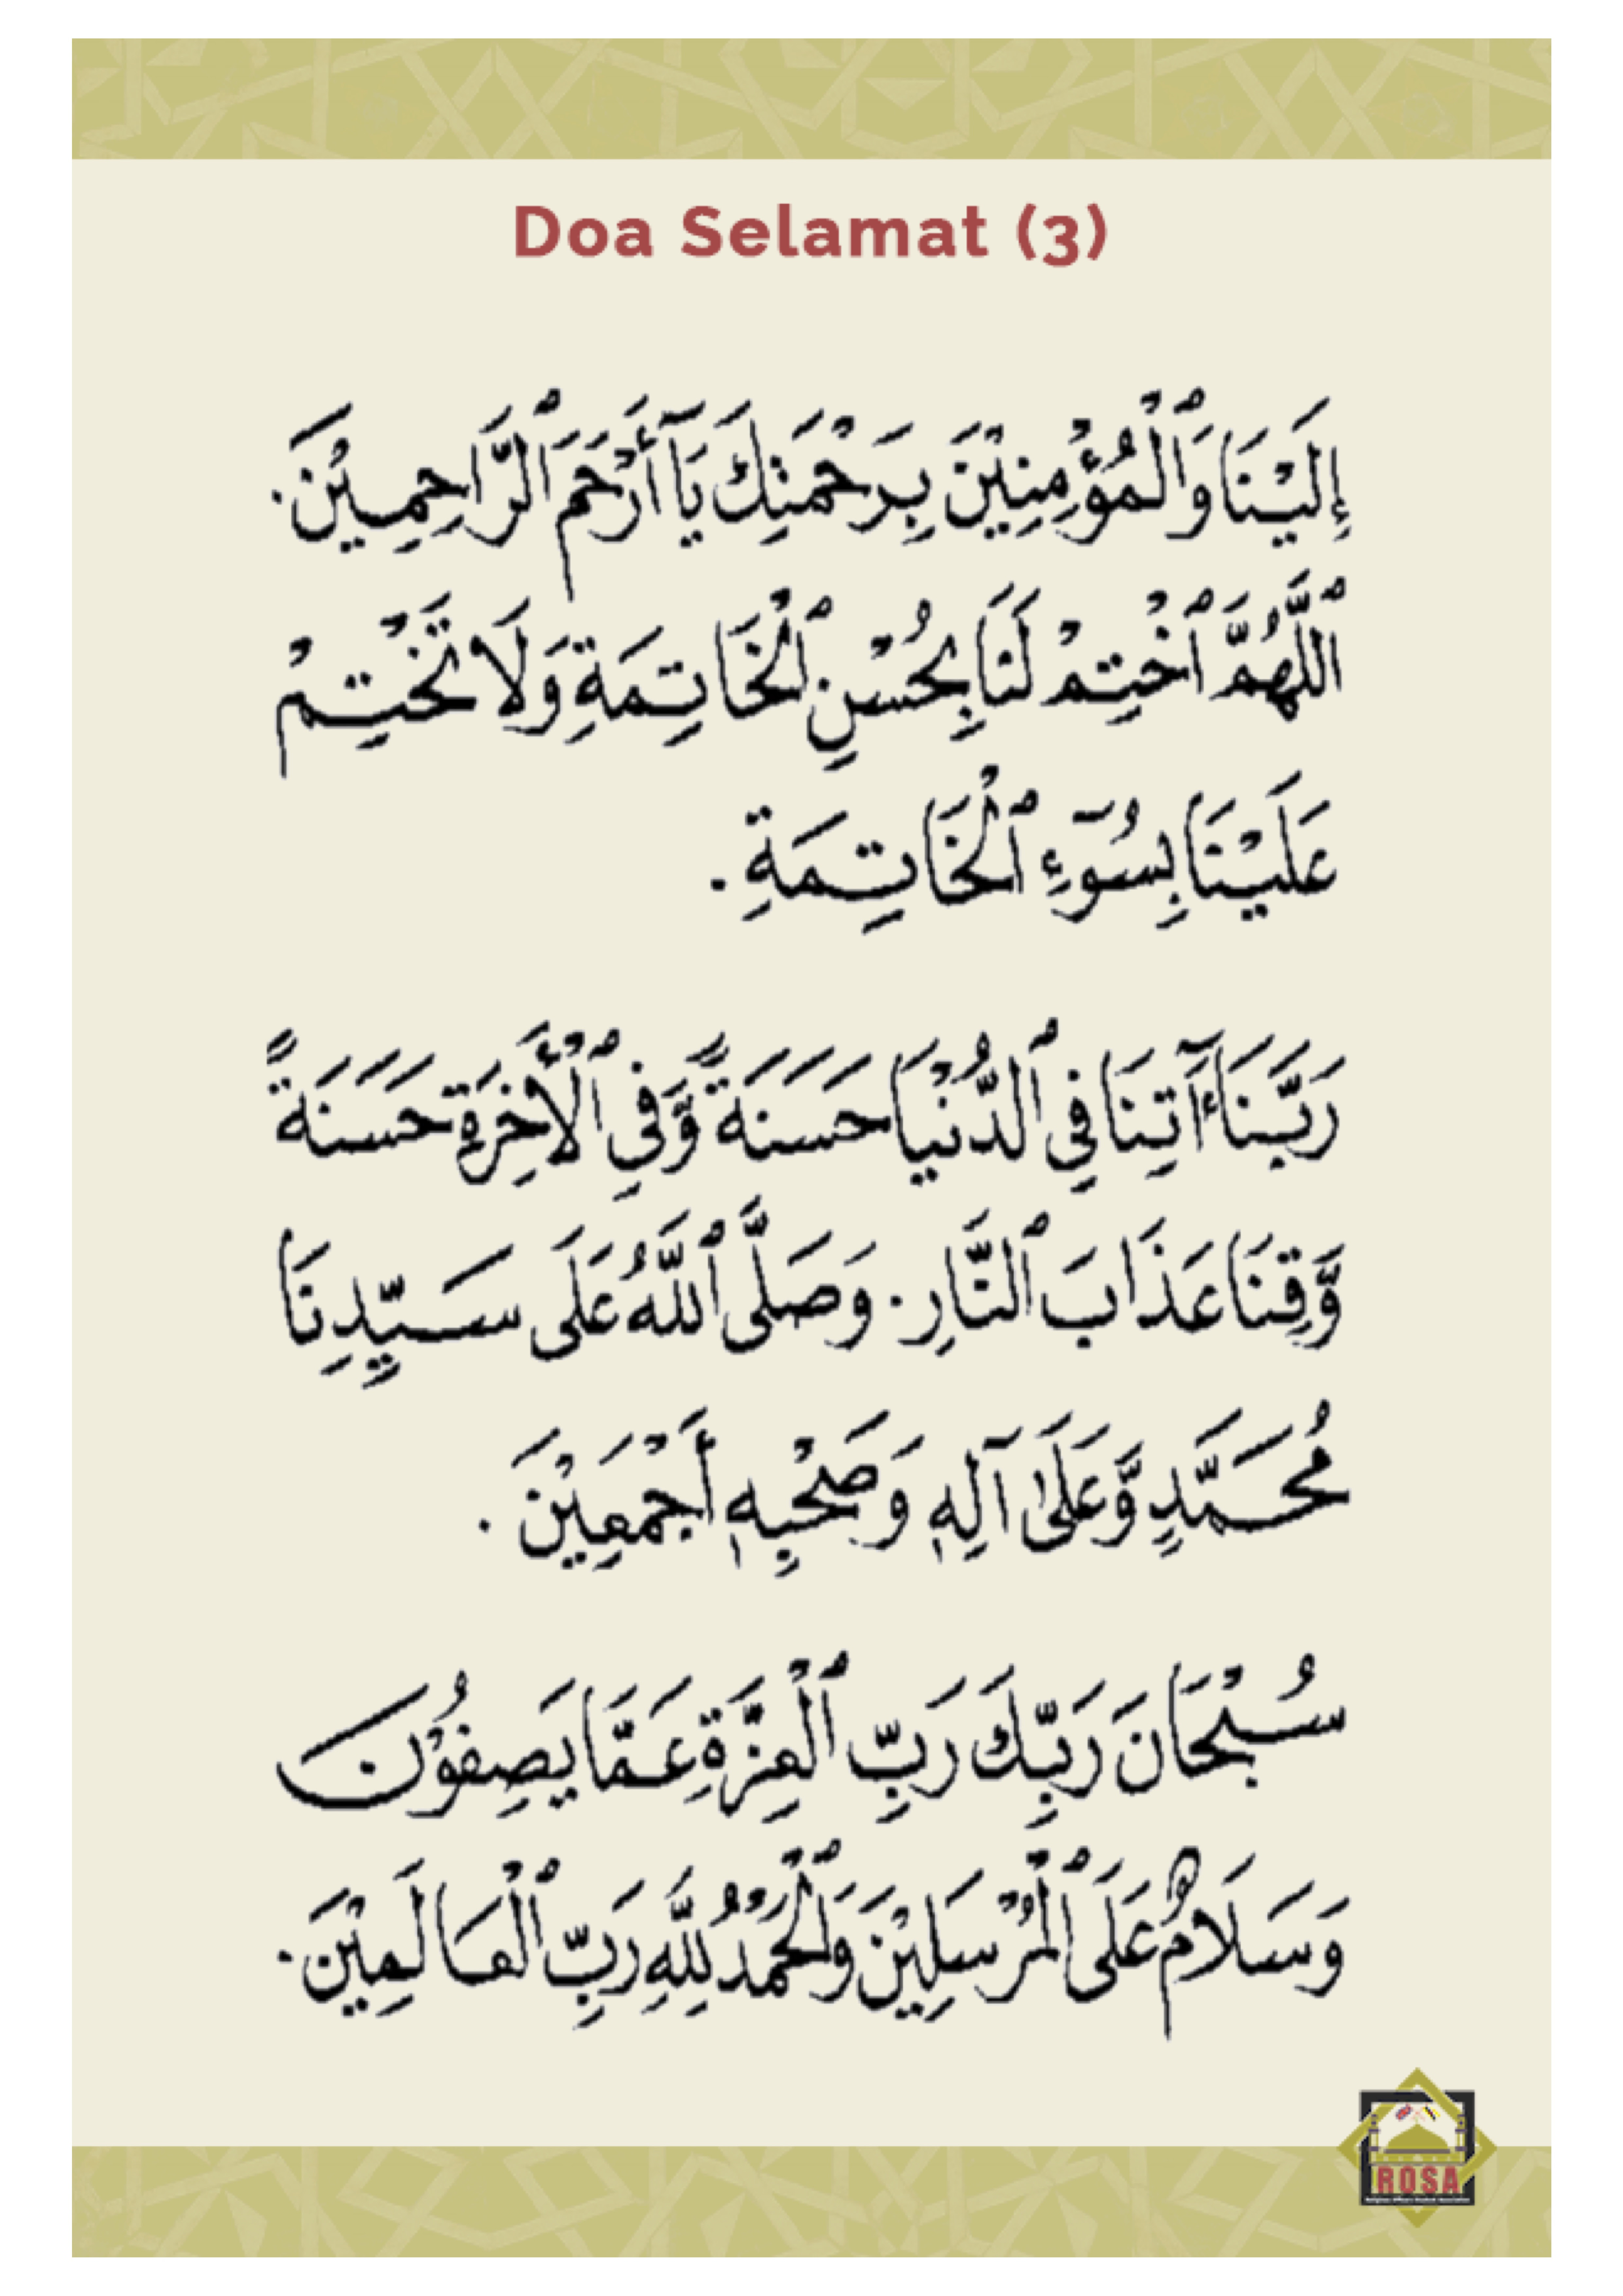 Doa Selamat (3)
إِلَيْنَا وَٱلْمُؤْمِنِيْنَ بِرَحْمَتِكَ يَآ أَرْحَمَ ٱلرَّاحِمِيْنَ.
ٱللَّهُمَّ ٱخْتِمْ لَنَا بِحُسْنِ ٱلْخَاتِمَةِ وَلَا تَخْتِمْ
عَلَيْنَا بِسُوٓءِ ٱلْخَاتِمَةِ .
رَبَّنَآ ءَآتِنَا فِي ٱلدُّنْيَا حَسَنَةً وَّفِي ٱلْأَخِرَةِ حَسَنَةً
وَّقِنَا عَذَابَ ٱلنَّارِ. وَصَلَّى ٱللَّهُ عَلَى سَيِّدِنَا
مُحَمَّدٍ وَّعَلَىٰ آلِهٖ وَصَحْبِهٖ أَجْمَعِيْنَ .
سُبْحَانَ رَبِّكَ رَبِّ ٱلْعِزَّةِ عَمَّا يَصِفُوْنَ
وَسَلَامٌ عَلَى ٱلْمُرْسَلِيْنَ وَٱلْحَمْدُ لِلَّهِ رَبِّ ٱلْعَالَمِيْنَ.
ROSA